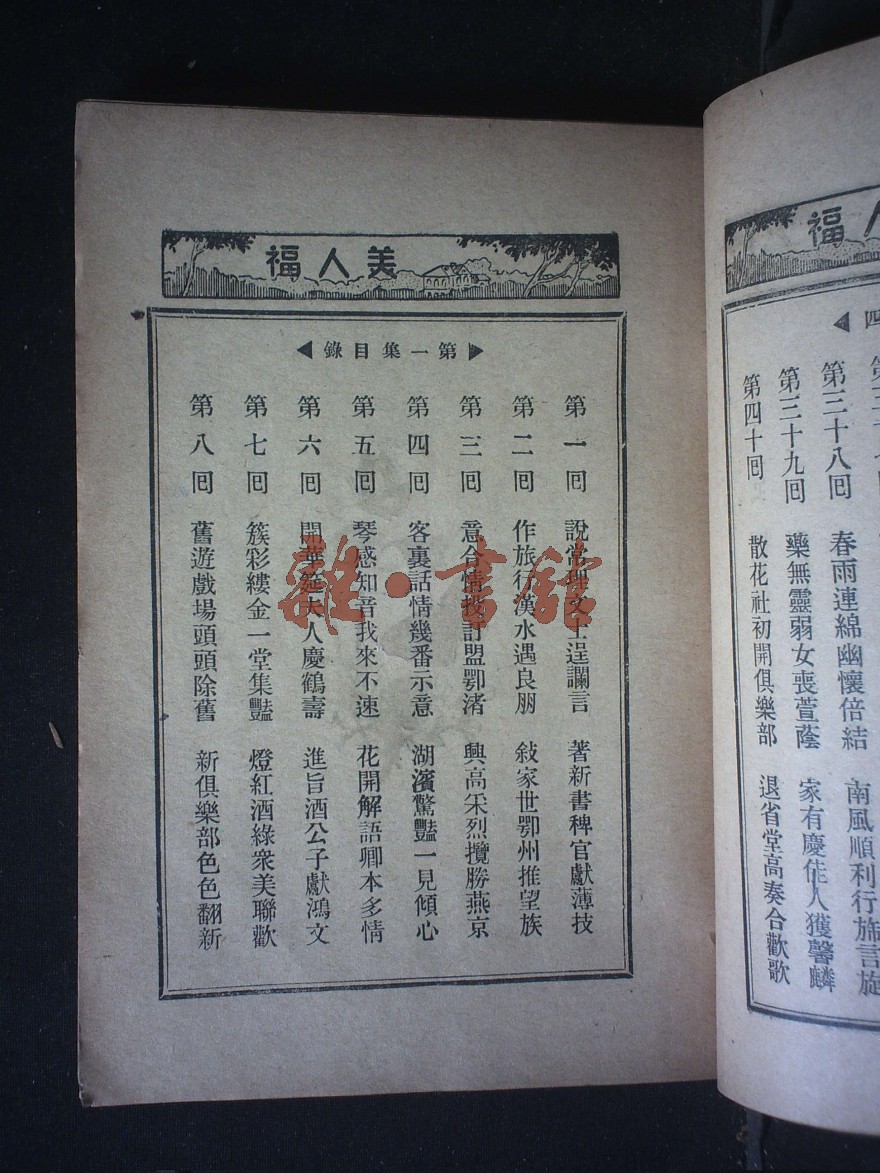 美人福
第一集目錄
第一回 說常理文士逞讕言 著新書稗官獻薄技
第二回 作旅行漢水遇良朋 敍家世鄂州推望族
第三回 意合情投訂盟鄂渚 興高采烈攬勝燕京
第四回 客裏話情幾番示意 湖濱驚豔一見傾心
第五回 琴感知音我來不速 花開解語卿本多情
第六回 開華筵夫人慶鶴壽 進旨酒公子獻鴻文
第七回 簇彩縷金一堂集豔 燈紅酒綠衆美聯歡
第八回 舊遊戲場頭頭除舊 新俱樂部色色翻新
雜·書館
福
四
第三十八回 春雨連綿幽懷倍結 南風順利行旆言旋
第三十九回 藥無靈弱女喪萱蔭 家有慶佳人獲馨麟
第四十回 散花社初開俱樂部 退省堂高奏合歡歌